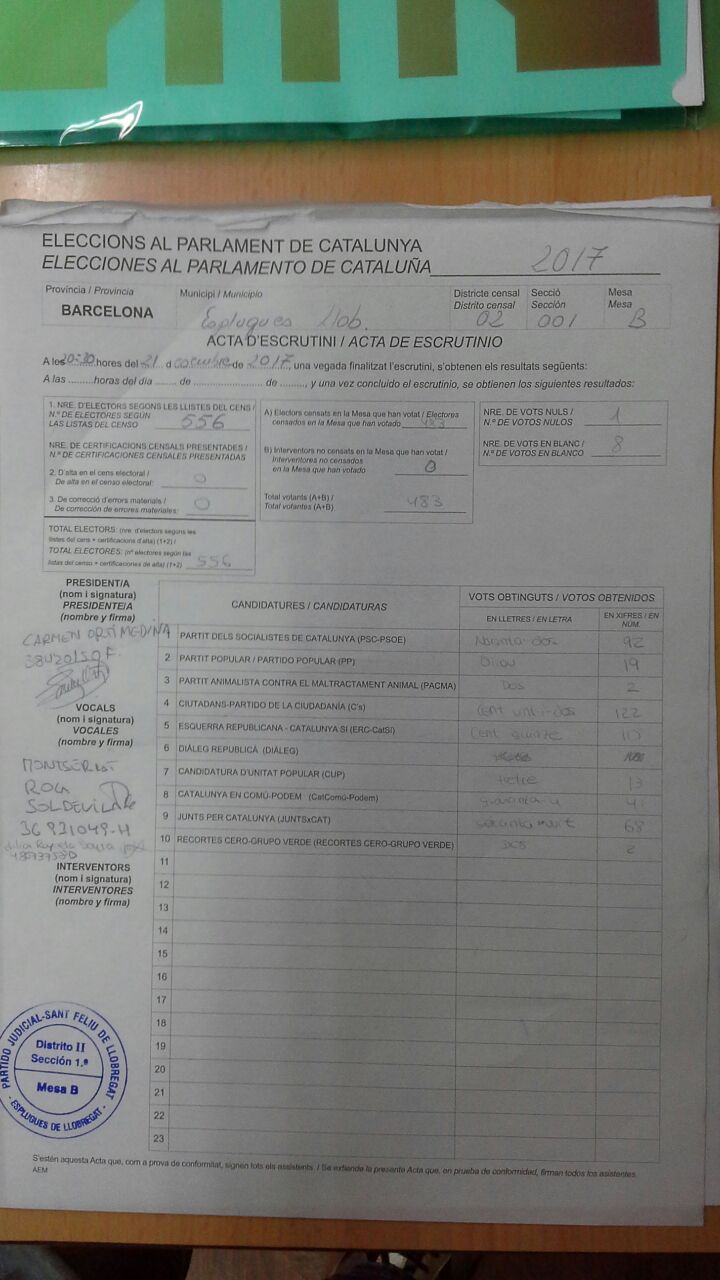 ELECCIONS AL PARLAMENT DE CATALUNYA
ELECCIONES AL PARLAMENTO DE CATALUÑA 2017
Província / Provincia
BARCELONA
Municipi / Municipio
Esplugues Llob.
Districte censal
Distrito censal
02
Secció
Sección
001
Mesa
Mesa
B
ACTA D'ESCRUTINI / ACTA DE ESCRUTINIO
A les 20:30 hores del 21 d de 2017, una vegada finalitzat l'escrutini, s'obtenen els resultats següents:
A las .........horas del día ....... de ........................ de ........., y una vez concluido el escrutinio, se obtienen los siguientes resultados:
1. NRE. D'ELECTORS SEGONS LES LLISTES DEL CENS /
N.º DE ELECTORES SEGÚN
LAS LISTAS DEL CENSO 556
NRE. DE CERTIFICACIONS CENSALS PRESENTADES /
N.º DE CERTIFICACIONES CENSALES PRESENTADAS
2. D'alta en el cens electoral /
De alta en el censo electoral: 0
3. De correcció d'errors materials /
De corrección de errores materiales: 0
TOTAL ELECTORS: (nre. d'electors segons les
llistes del cens + certificacions d'alta) (1+2) /
TOTAL ELECTORES: (nº electores según las
listas del censo + certificaciones de alta) (1+2) 556
A) Electors censats en la Mesa que han votat / Electores
censados en la Mesa que han votado 483
B) Interventors no censats en la Mesa que han votat /
Interventores no censados
en la Mesa que han votado 0
Total votants (A+B) /
Total votantes (A+B) 483
NRE. DE VOTS NULS /
N.º DE VOTOS NULOS 1
NRE. DE VOTS EN BLANC /
N.º DE VOTOS EN BLANCO 8
PRESIDENT/A
(nom i signatura)
PRESIDENTE/A
(nombre y firma)
CARMEN ORTÍ MEDINA
38420150F.
VOCALS
(nom i signatura)
VOCALES
(nombre y firma)
MONTSERRAT
ROCA
SOLDEVILA
36931049-H
INTERVENTORS
(nom i signatura)
INTERVENTORES
(nombre y firma)
CANDIDATURES / CANDIDATURAS
VOTS OBTINGUTS / VOTOS OBTENIDOS
EN LLETRES / EN LETRA
EN XIFRES / EN NÚM.
1 PARTIT DELS SOCIALISTES DE CATALUNYA (PSC-PSOE) Noranta-dos 92
2 PARTIT POPULAR / PARTIDO POPULAR (PP) Dinou 19
3 PARTIT ANIMALISTA CONTRA EL MALTRACTAMENT ANIMAL (PACMA) Dos 2
4 CIUTADANS-PARTIDO DE LA CIUDADANÍA (C's) Cent vint-i-dos 122
5 ESQUERRA REPUBLICANA - CATALUNYA SÍ (ERC-CatSí) Cent quinze
6 DIÀLEG REPUBLICÀ (DIÀLEG)
7 CANDIDATURA D'UNITAT POPULAR (CUP) tretze 13
8 CATALUNYA EN COMÚ-PODEM (CatComú-Podem) quaranta-u 41
9 JUNTS PER CATALUNYA (JUNTSxCAT) seixanta vuit 68
10 RECORTES CERO-GRUPO VERDE (RECORTES CERO-GRUPO VERDE) DOS 2
11
12
13
14
15
16
17
18
19
20
21
22
23
PARTIDO JUDICIAL-SANT FELIU DE LLOBREGAT
Distrito II
Sección 1.ª
Mesa B
- ESPLUGUES DE LLOBREGAT -
S'estén aquesta Acta que, com a prova de conformitat, signen tots els assistents. / Se extiende la presente Acta que, en prueba de conformidad, firman todos los asistentes.
AEM